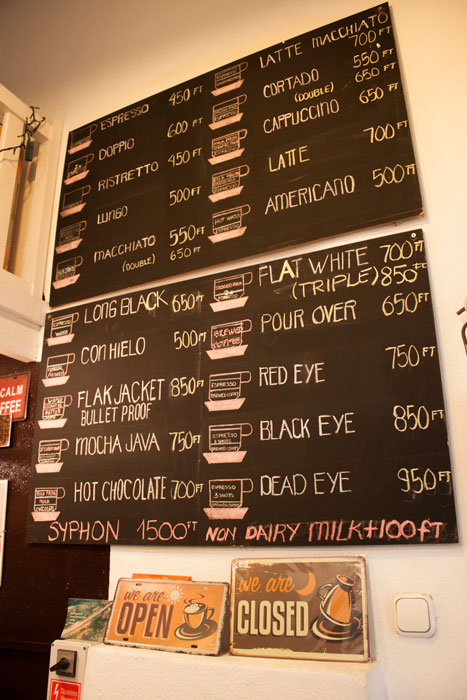 ESPRESSO 450 FT
DOPPIO 600 FT
RISTRETTO 450 FT
LUNGO 500 FT
MACCHIATO 550 FT
(DOUBLE) 650 FT
LATTE MACCHIATO
700 FT
CORTADO 550 FT
(DOUBLE) 650 FT
CAPPUCCINO 650 FT
LATTE 700 FT
AMERICANO 500 FT
HOT WATER
ESPRESSO
LONG BLACK 650 FT
CON HIELO 500 FT
FLAK JACKET 850 FT
BULLET PROOF
MOCHA JAVA 750 FT
HOT CHOCOLATE 700 FT
FLAT WHITE 700 FT
(TRIPLE) 850 FT
POUR OVER 650 FT
BREWED
COFFEE
RED EYE 750 FT
ESPRESSO
BREWED COFFEE
BLACK EYE 850 FT
ESPRESSO
2 SHOTS
BREWED COFFEE
DEAD EYE 950 FT
ESPRESSO
3 SHOTS
BREWED COFFEE
SYPHON 1500 FT NON DAIRY MILK +100 FT
CALM
FFEE
we are
OPEN
we are
CLOSED